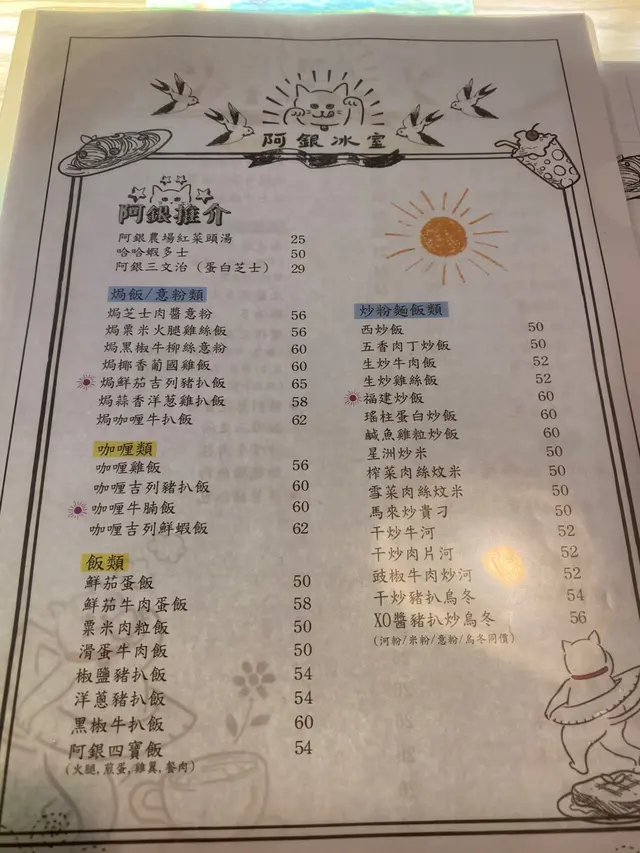 阿銀冰室
阿銀推介
阿銀農場紅菜頭湯 25
哈哈蝦多士 50
阿銀三文治（蛋白芝士） 29
焗飯/意粉類
焗芝士肉醬意粉 56
焗粟米火腿雞絲飯 56
焗黑椒牛柳絲意粉 60
焗椰香葡國雞飯 60
焗鮮茄吉列豬扒飯 65
焗蒜香洋葱雞扒飯 58
焗咖喱牛扒飯 62
咖喱類
咖喱雞飯 56
咖喱吉列豬扒飯 60
咖喱牛腩飯 60
咖喱吉列鮮蝦飯 62
飯類
鮮茄蛋飯 50
鮮茄牛肉蛋飯 58
粟米肉粒飯 50
滑蛋牛肉飯 50
椒鹽豬扒飯 54
洋蔥豬扒飯 54
黑椒牛扒飯 60
阿銀四寶飯 54
（火腿,煎蛋,雞翼,餐肉）
炒粉麵飯類
西炒飯 50
五香肉丁炒飯 50
生炒牛肉飯 52
生炒雞絲飯 52
福建炒飯 60
瑤柱蛋白炒飯 60
鹹魚雞粒炒飯 60
星洲炒米 50
榨菜肉絲炆米 50
雪菜肉絲炆米 50
馬來炒貴刁 50
干炒牛河 52
干炒肉片河 52
豉椒牛肉炒河 52
干炒豬扒烏冬 54
XO醬豬扒炒烏冬 56
（河粉/米粉/意粉/烏冬同價）